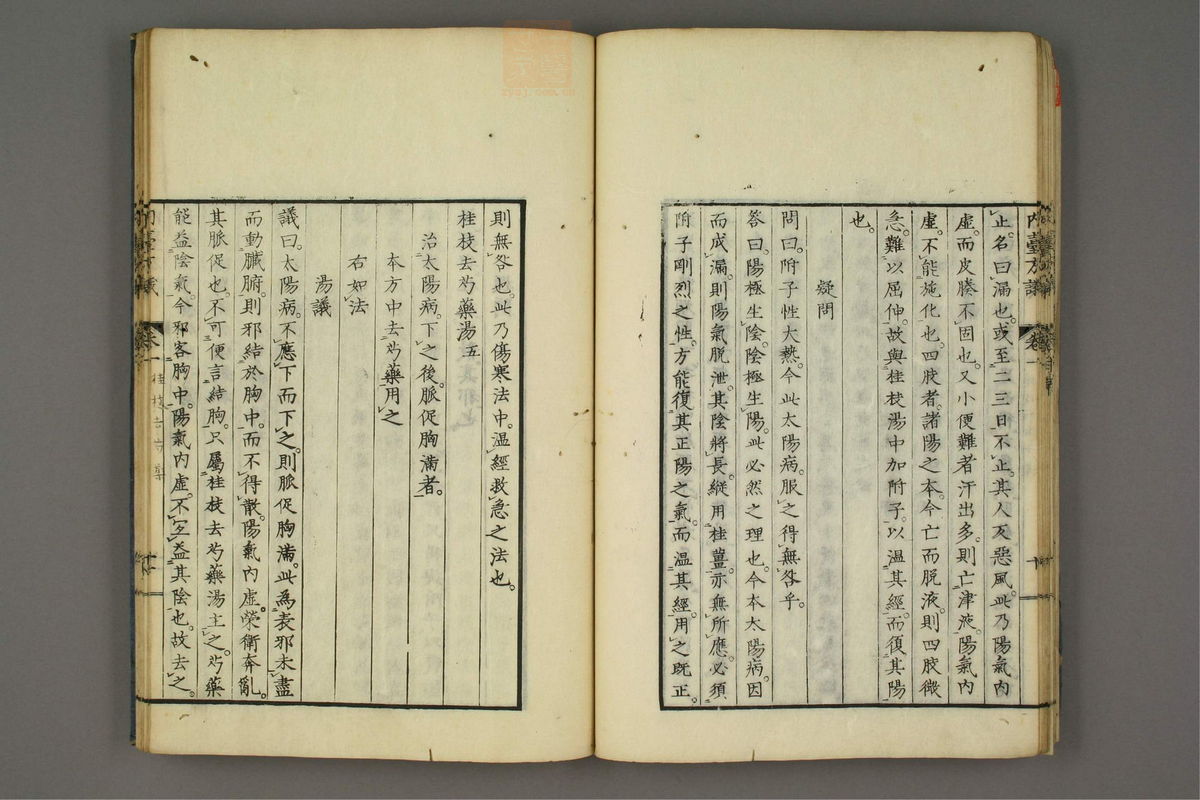 內臺方議 卷一
止名曰漏也。或至二三日不止。其人又惡風。此乃陽氣內
虛。而皮腠不固也。又小便難者汗出多。則亡津液。陽氣內
虛。不能施化也。四肢者。諸陽之本。今亡而脫液。則四肢微
急。難以屈伸。故與桂枝湯中加附子。以溫其經。而復其陽
也。
疑問
問曰。附子性大熱。今此太陽病。服之得無咎乎。
答曰。陽極生陰。陰極生陽。此必然之理也。今本太陽病。因
而成漏。則陽氣脫泄。其陰將長。縱用桂薑。亦無所應。必須
附子剛烈之性。方能復其正陽之氣。而溫其經。用之既正。
則無咎也。此乃傷寒法中。溫經救急之法也。
桂枝去芍藥湯五
治太陽病。下之後。脈促胸滿者。
本方中去芍藥用之
右如法
湯議
議曰。太陽病。不應下而下之。則脈促胸滿。此為表邪未盡
而動臟腑。則邪結於胸中。而不得散。陽氣內虛。榮衛奔亂。
其脈促也。不可便言結胸。只屬桂枝去芍藥湯主之。芍藥
能益陰氣。今邪客胸中。陽氣內虛。不宜益其陰也。故去之。
卷一 桂枝去芍藥